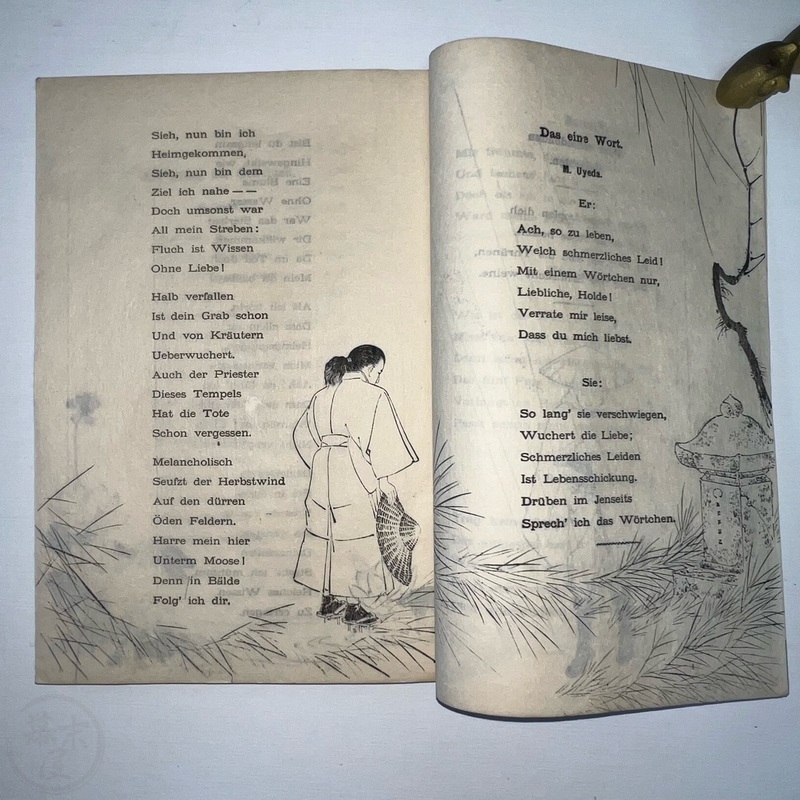 Sieh, nun bin ich
Heimgekommen,
Sieh, nun bin dem
Ziel ich nahe — —
Doch umsonst war
All mein Streben:
Fluch ist Wissen
Ohne Liebe!
Halb verfallen
Ist dein Grab schon
Und von Kräutern
Ueberwuchert.
Auch der Priester
Dieses Tempels
Hat die Tote
Schon vergessen.
Melancholisch
Seufzt der Herbstwind
Auf den dürren
Öden Feldern.
Harre mein hier
Unterm Moose!
Denn in Bälde
Folg' ich dir.
Das eine Wort.
M. Uyeda.
Er:
Ach, so zu leben,
Welch schmerzliches Leid!
Mit einem Wörtchen nur,
Liebliche, Holde!
Verrate mir leise,
Dass du mich liebst.
Sie:
So lang' sie verschwiegen,
Wuchert die Liebe;
Schmerzliches Leiden
Ist Lebensschickung.
Drüben im Jenseits
Sprech' ich das Wörtchen.